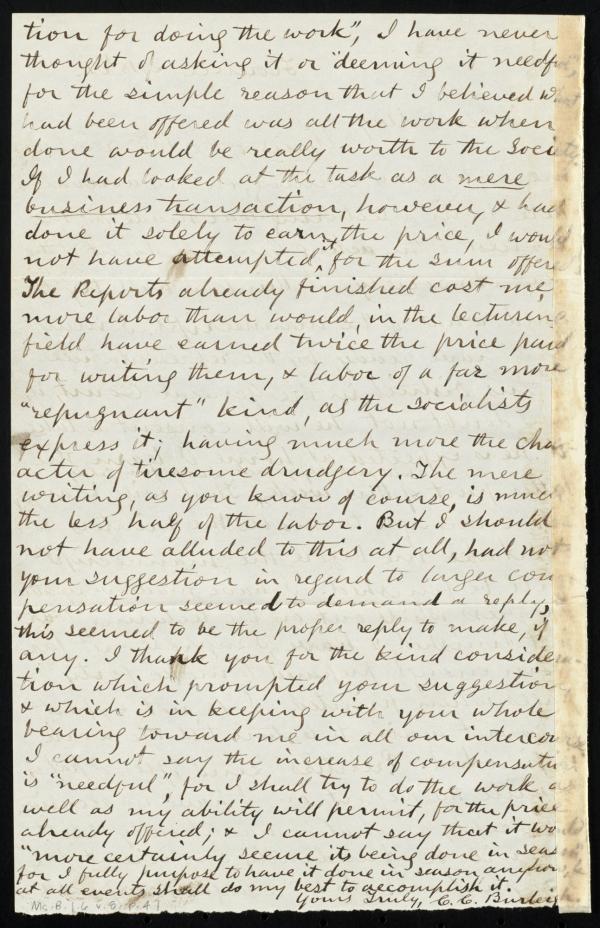 tion for doing the work", I have never
thought of asking it or "deeming it needful",
for the simple reason that I believed what
had been offered was all the work when
done would be really worth to the Society.
If I had looked at the task as a mere
business transaction, however, & had
done it solely to earn the price, I would
not have attempted it for the sum offered.
The Reports already finished cost me
more labor than would, in the lecturing
field have earned twice the price paid
for writing them, & labor of a far more
"repugnant" kind, as the socialists
express it; having much more the char-
acter of tiresome drudgery. The mere
writing, as you know of course, is much
the less half of the labor. But I should
not have alluded to this at all, had not
your suggestion in regard to larger com
pensation seemed to demand a reply,
this seemed to be the proper reply to make, if
any. I thank you for the kind considera-
tion which prompted your suggestion,
& which is in keeping with your whole
bearing toward me in all our intercourse.
I cannot say the increase of compensation
is "needful", for I shall try to do the work as
well as my ability will permit, for the price
already offered; & I cannot say that it would
"more certainly secure its being done in season",
for I fully purpose to have it done in season anyhow, &
at all events shall do my best to accomplish it.
Yours Truly, C. C. Burleigh.
Ms. B. 1. 6 v. 8, p. 47